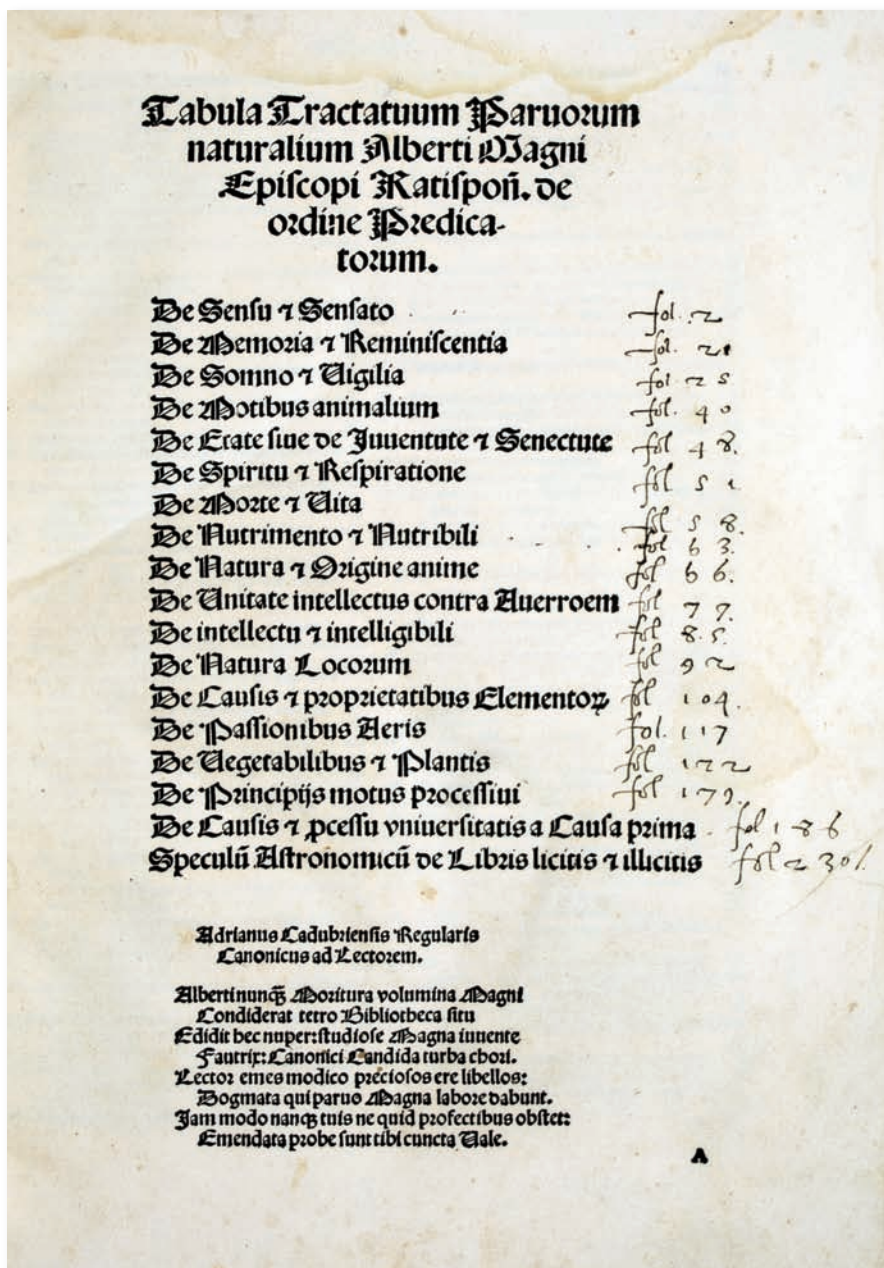 Tabula Tractatuum Paruorum
naturalium Alberti Magni
Episcopi Ratispoñ. de
ordine Predica-
torum.
De Sensu ⁊ Sensato fol. 2
De Memoria ⁊ Reminiscentia fol. 21
De Somno ⁊ Uigilia fol 25
De Motibus animalium fol. 40
De Etate siue de Iuuentute ⁊ Senectute fol 48.
De Spiritu ⁊ Respiratione fol 51
De Morte ⁊ Uita
De Nutrimento ⁊ Nutribili fol 58.
fol 63.
De Natura ⁊ Origine anime fol 66.
De Unitate intellectus contra Auerroem fol 77.
De intellectu ⁊ intelligibili fol 85.
De Natura Locorum fol 92
De Causis ⁊ proprietatibus Elementoꝝ fol 104.
De Passionibus Aeris fol. 117
De Uegetabilibus ⁊ Plantis fol 122
De Principijs motus processiui fol 179.
De Causis ⁊ ꝓcessu vniuersitatis a Causa prima fol 186
Speculū Astronomicū de Libris licitis ⁊ illicitis fol 230
Adrianus Cadubriensis Regularis
Canonicus ad Lectorem.
Alberti nunꝙ̃ Moritura volumina Magni
Condiderat tetro Bibliotheca situ
Edidit hec nuper: studiose Magna iuuente
Fautrix: Canonici Candida turba chori.
Lector emes modico preciosos ere libellos:
Dogmata qui paruo Magna labore dabunt.
Iam modo nanqꝫ tuis ne quid profectibus obstet:
Emendata probe sunt tibi cuncta Uale.
A